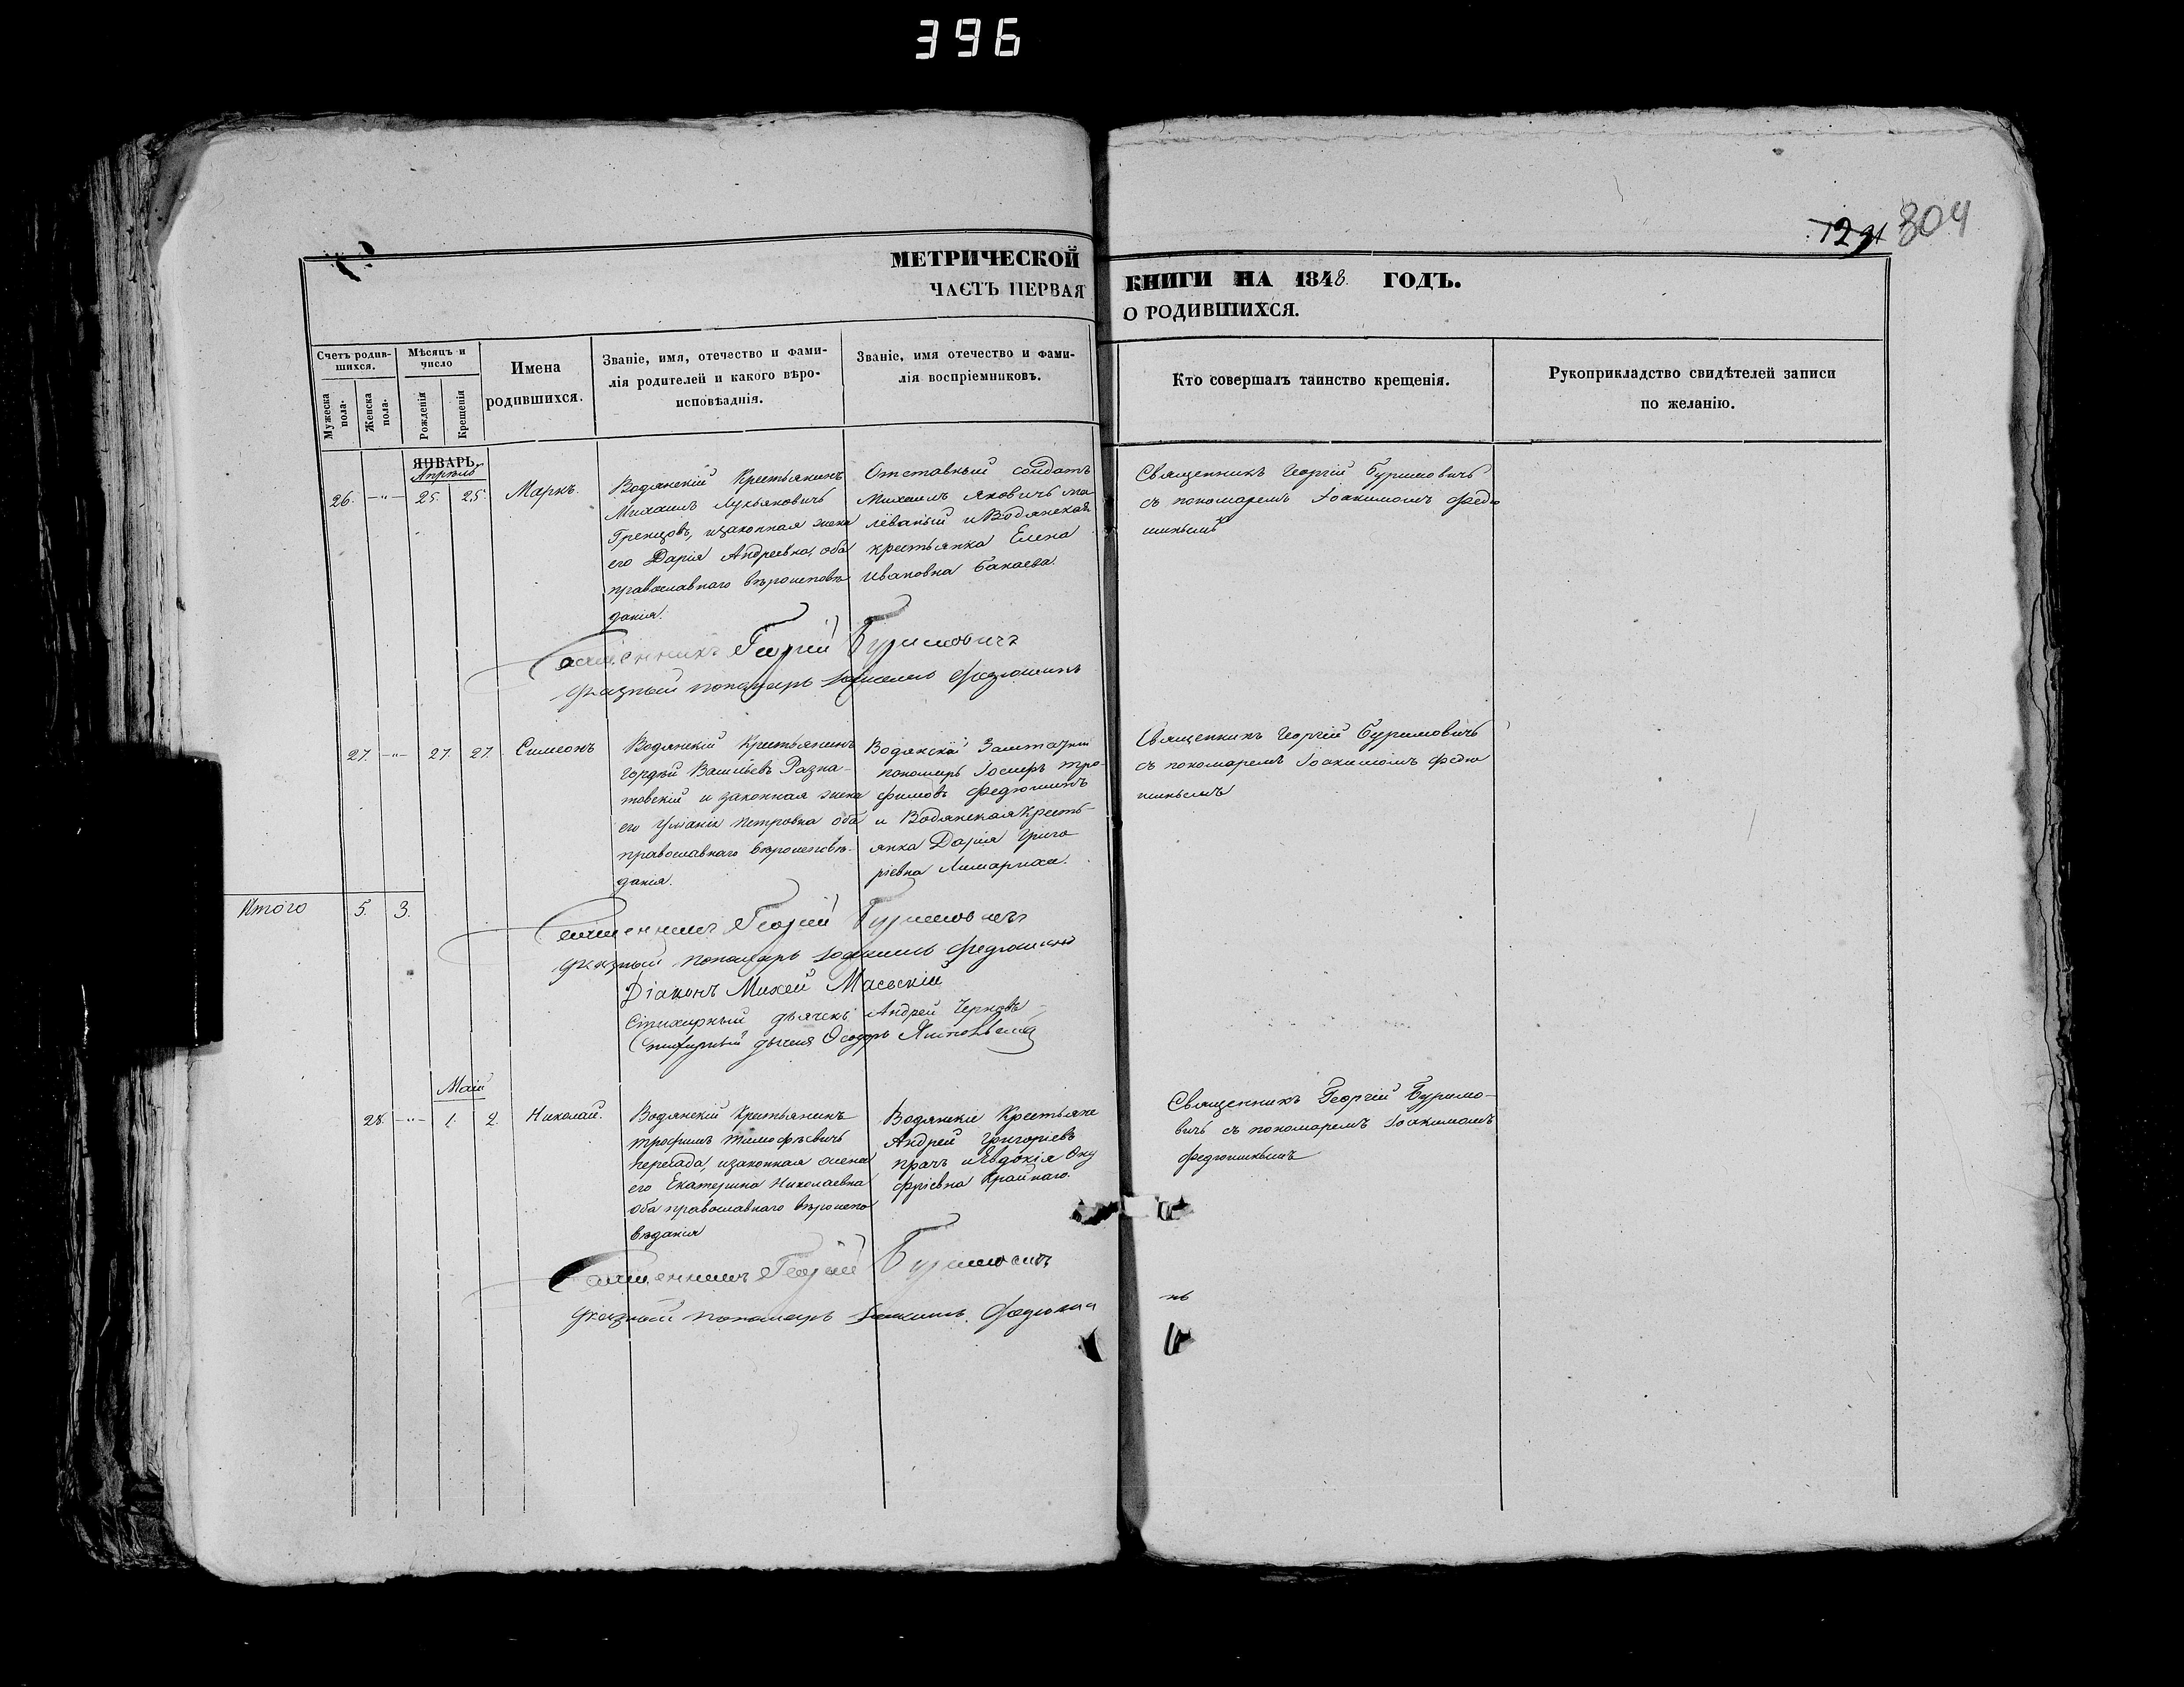 396
1291 304
МЕТРИЧЕСКОЙ КНИГИ НА 1848. ГОДЪ.
ЧАСТЬ ПЕРВАЯ О РОДИВШИХСЯ.
Счетъ родив-
шихся.
Мужеска пола.
Женска пола.
Мѣсяцъ и
число
Рожденія
Крещенія
Имена
родившихся.
Званіе, имя, отечество и фами-
лія родителей и какого вѣро-
исповѣаднія.
Званіе, имя отечество и фами-
лія воспріемниковъ.
Кто совершалъ таинство крещенія.
Рукоприкладство свидѣтелей записи
по желанію.
ЯНВАРЬ.
Апрѣль
26. —"— 25. 25. Маркъ.
Водянскій Крестьянинъ
Михаилъ Лукьяновичь
Гренцовъ, изаконная жена
его Дарія Андреевна, оба
православнаго вѣроисповѣ
данія.
Отставный солдатъ
Михаилъ Яковичь ма
леваный и Водянская
крестьянка Елена
Ивановна Бакаева.
Священникъ Георгій Буримовичь
съ пономаремъ Іоакимомъ Федю
шинымъ
Священникъ Георгій Буримовичъ
Указный пономарь Іоакимъ Федюшинъ
27. —"— 27. 27. Симеонъ
Водянскій Крестьянинъ
Гордѣй Васильевъ Разна-
товскій и законная жена
его Уліанія Петровна оба
православнаго вѣроисповѣ-
данія.
Водянскій Заштатный
пономарь Іосифъ Тро-
фимовъ Федюшинъ
и Водянская Кресть-
янка Дарія Григо
ріевна
Священникъ Георгій Буримовичь
съ пономаремъ Іоакимомъ Федю
шинымъ
Итого 5. 3.
Священникъ Георгій Буримовичъ
Указный пономарь Іоакимъ Федюшинъ
Діаконъ Михей Маевскій
Стихарный дьячекъ Андрей Черновъ
Стихарный дьячекъ Ѳеодоръ
Маій
28. —"— 1. 2. Николай.
Водянскій Крестьянинъ
Трофимъ Тимофѣевичь
Пересада, изаконная жена
его Екатерина Николаевна
оба православнаго вѣроиспо
вѣданія
Водянскіе Крестьяне
Андрей Григоріевъ
Прачъ и Евдокія Ону
фріевна Крайнаго.
Священникъ Георгій Буримо-
вичь съ пономаремъ Іоакимомъ
Федюшинымъ
Священникъ Георгій Буримовичъ
Указный пономарь Іоакимъ Федюшинъ